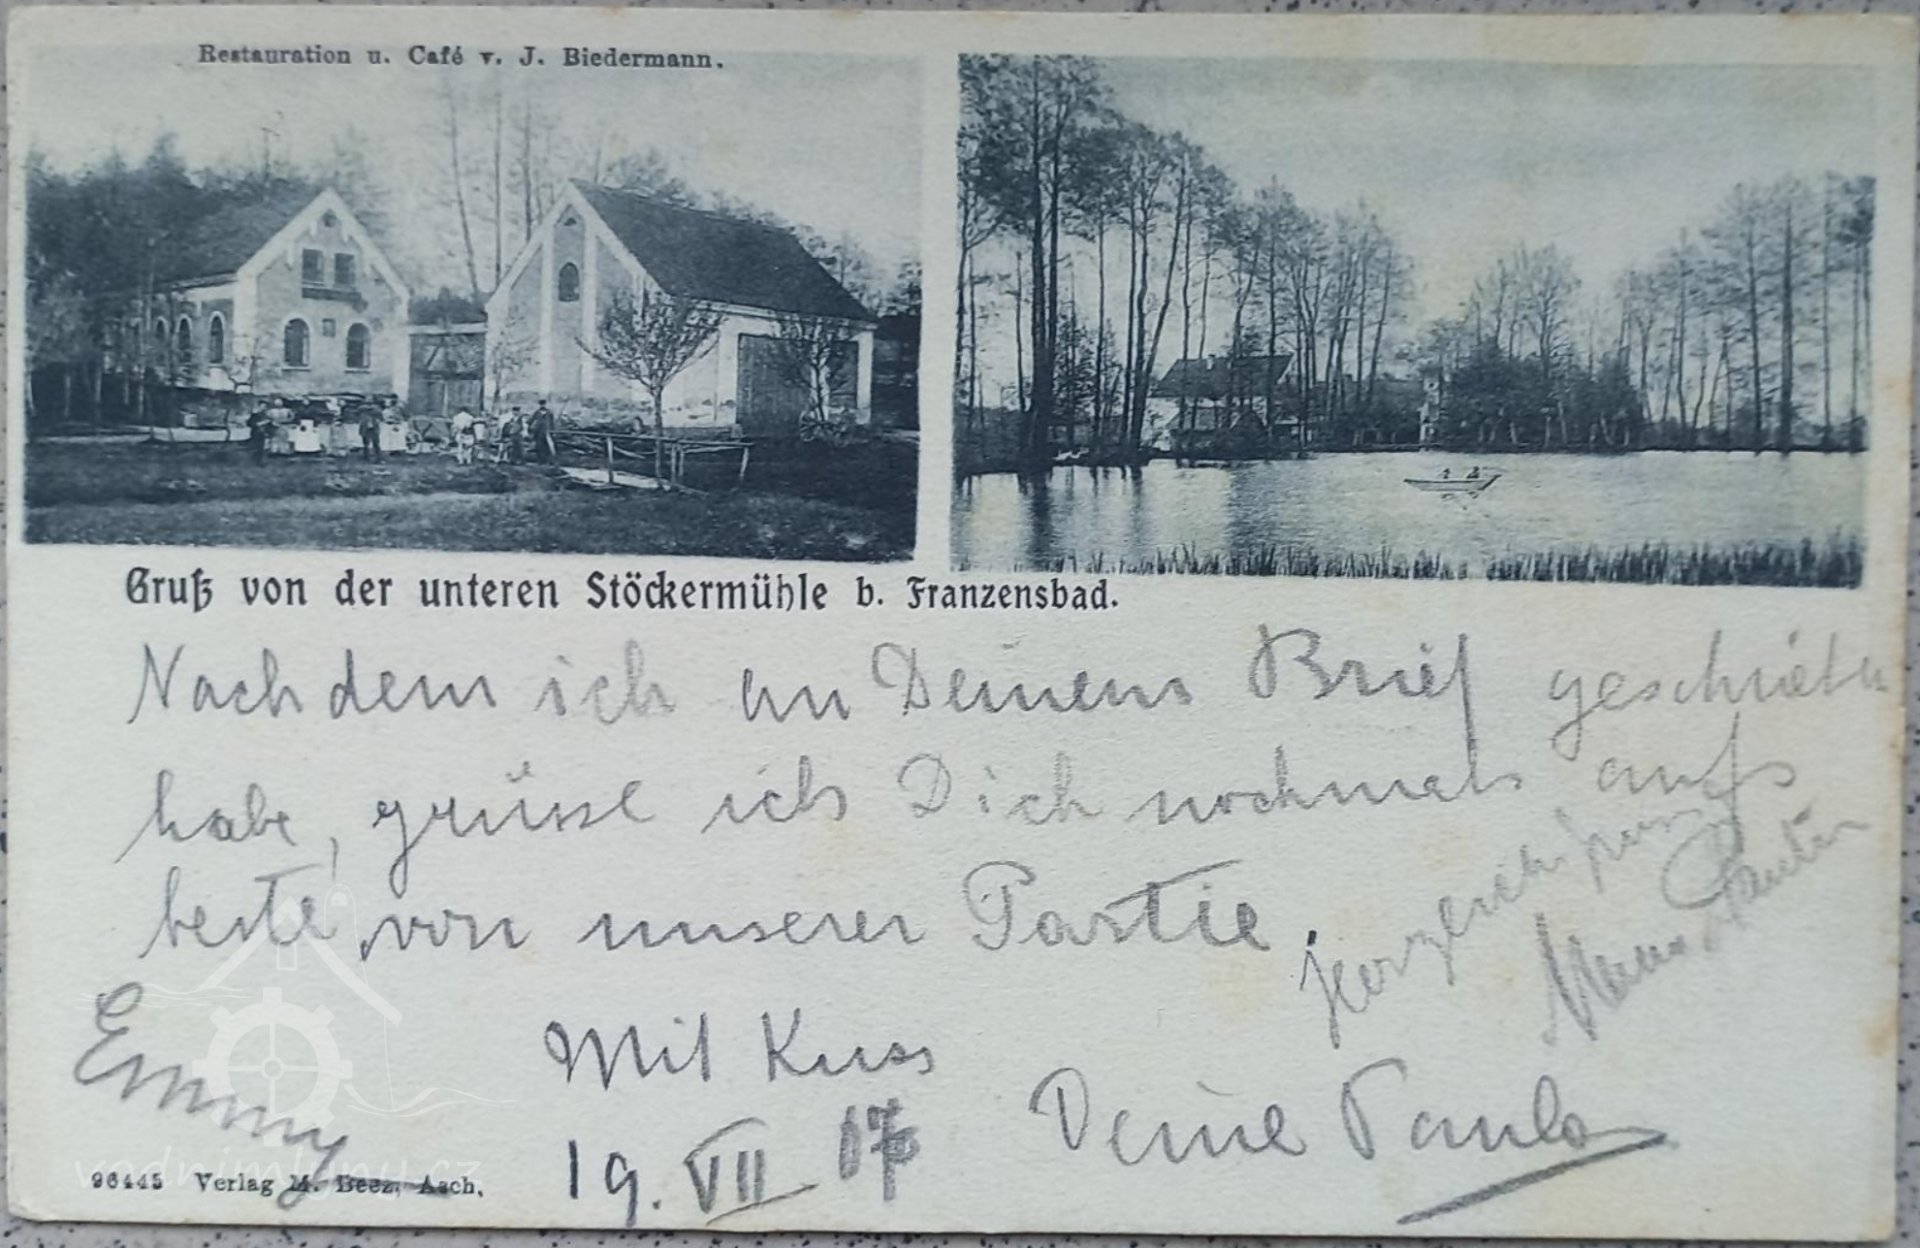 Restauration u. Café v. J. Biedermann.
Gruß von der unteren Stöckermühle b. Franzensbad.
Nachdem ich an Deinem Brief geschrieben
habe, grüsse ich Dich nochmals aufs
beste, von unserer Partie.
Emmy
Mit Kuss
19. VII
Deine Paula
96445 Verlag M. Beez, Asch.
vodnimlyny.cz